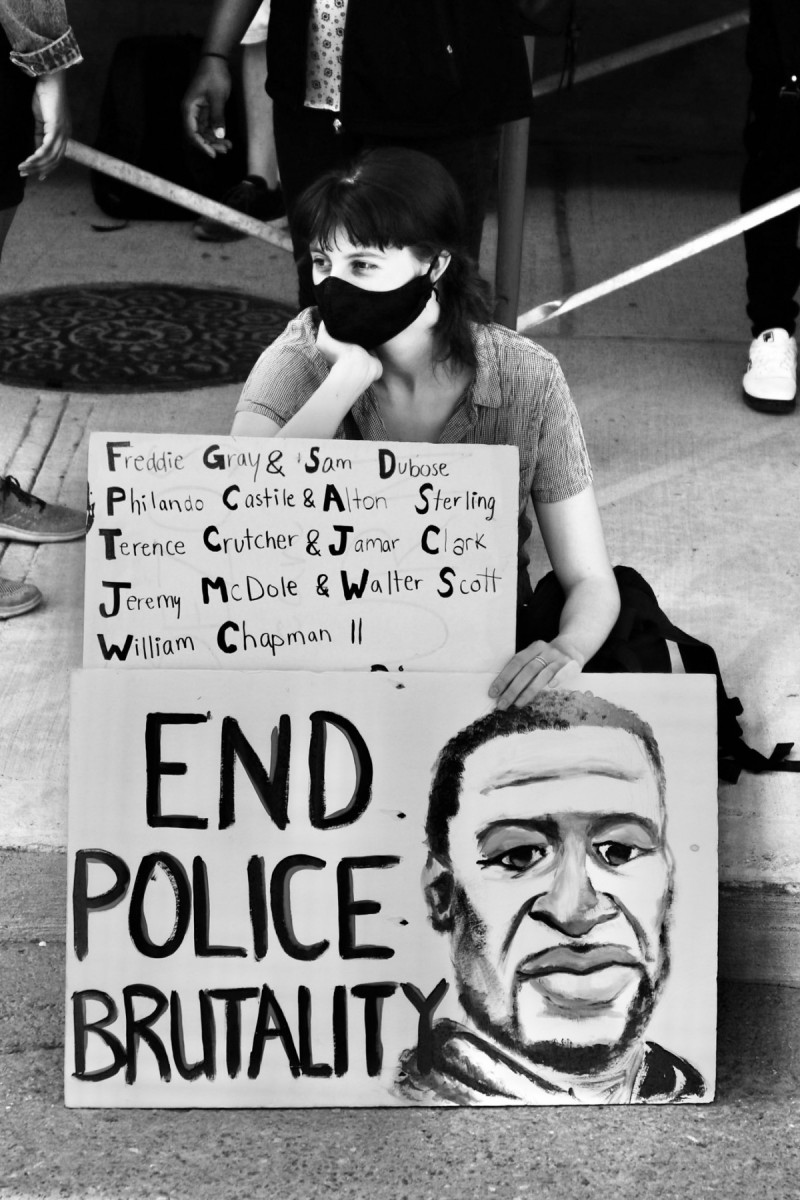 Freddie Gray & Sam Dubose
Philando Castile & Alton Sterling
Terence Crutcher & Jamar Clark
Jeremy McDole & Walter Scott
William Chapman II
END
POLICE
BRUTALITY